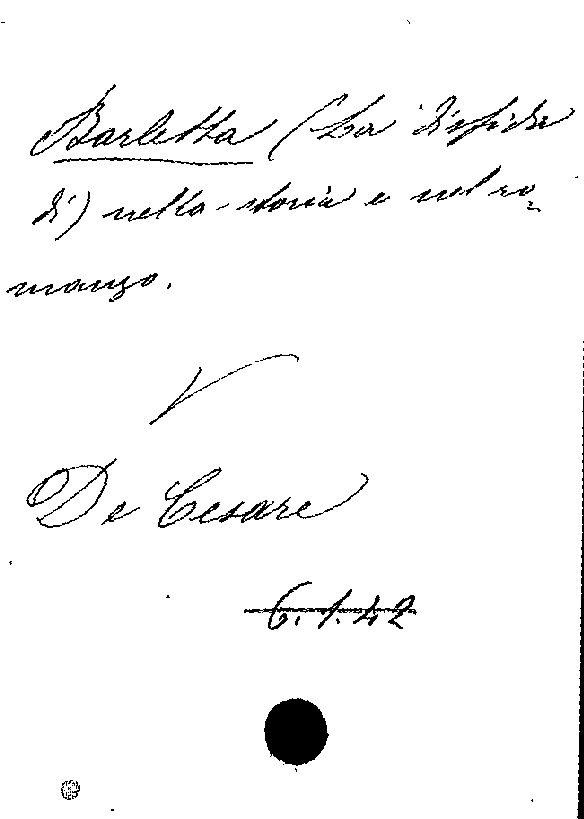 Barletta (La disfida
di) nella storia e nel ro=
manzo.
V
De Cesare
6.1.42